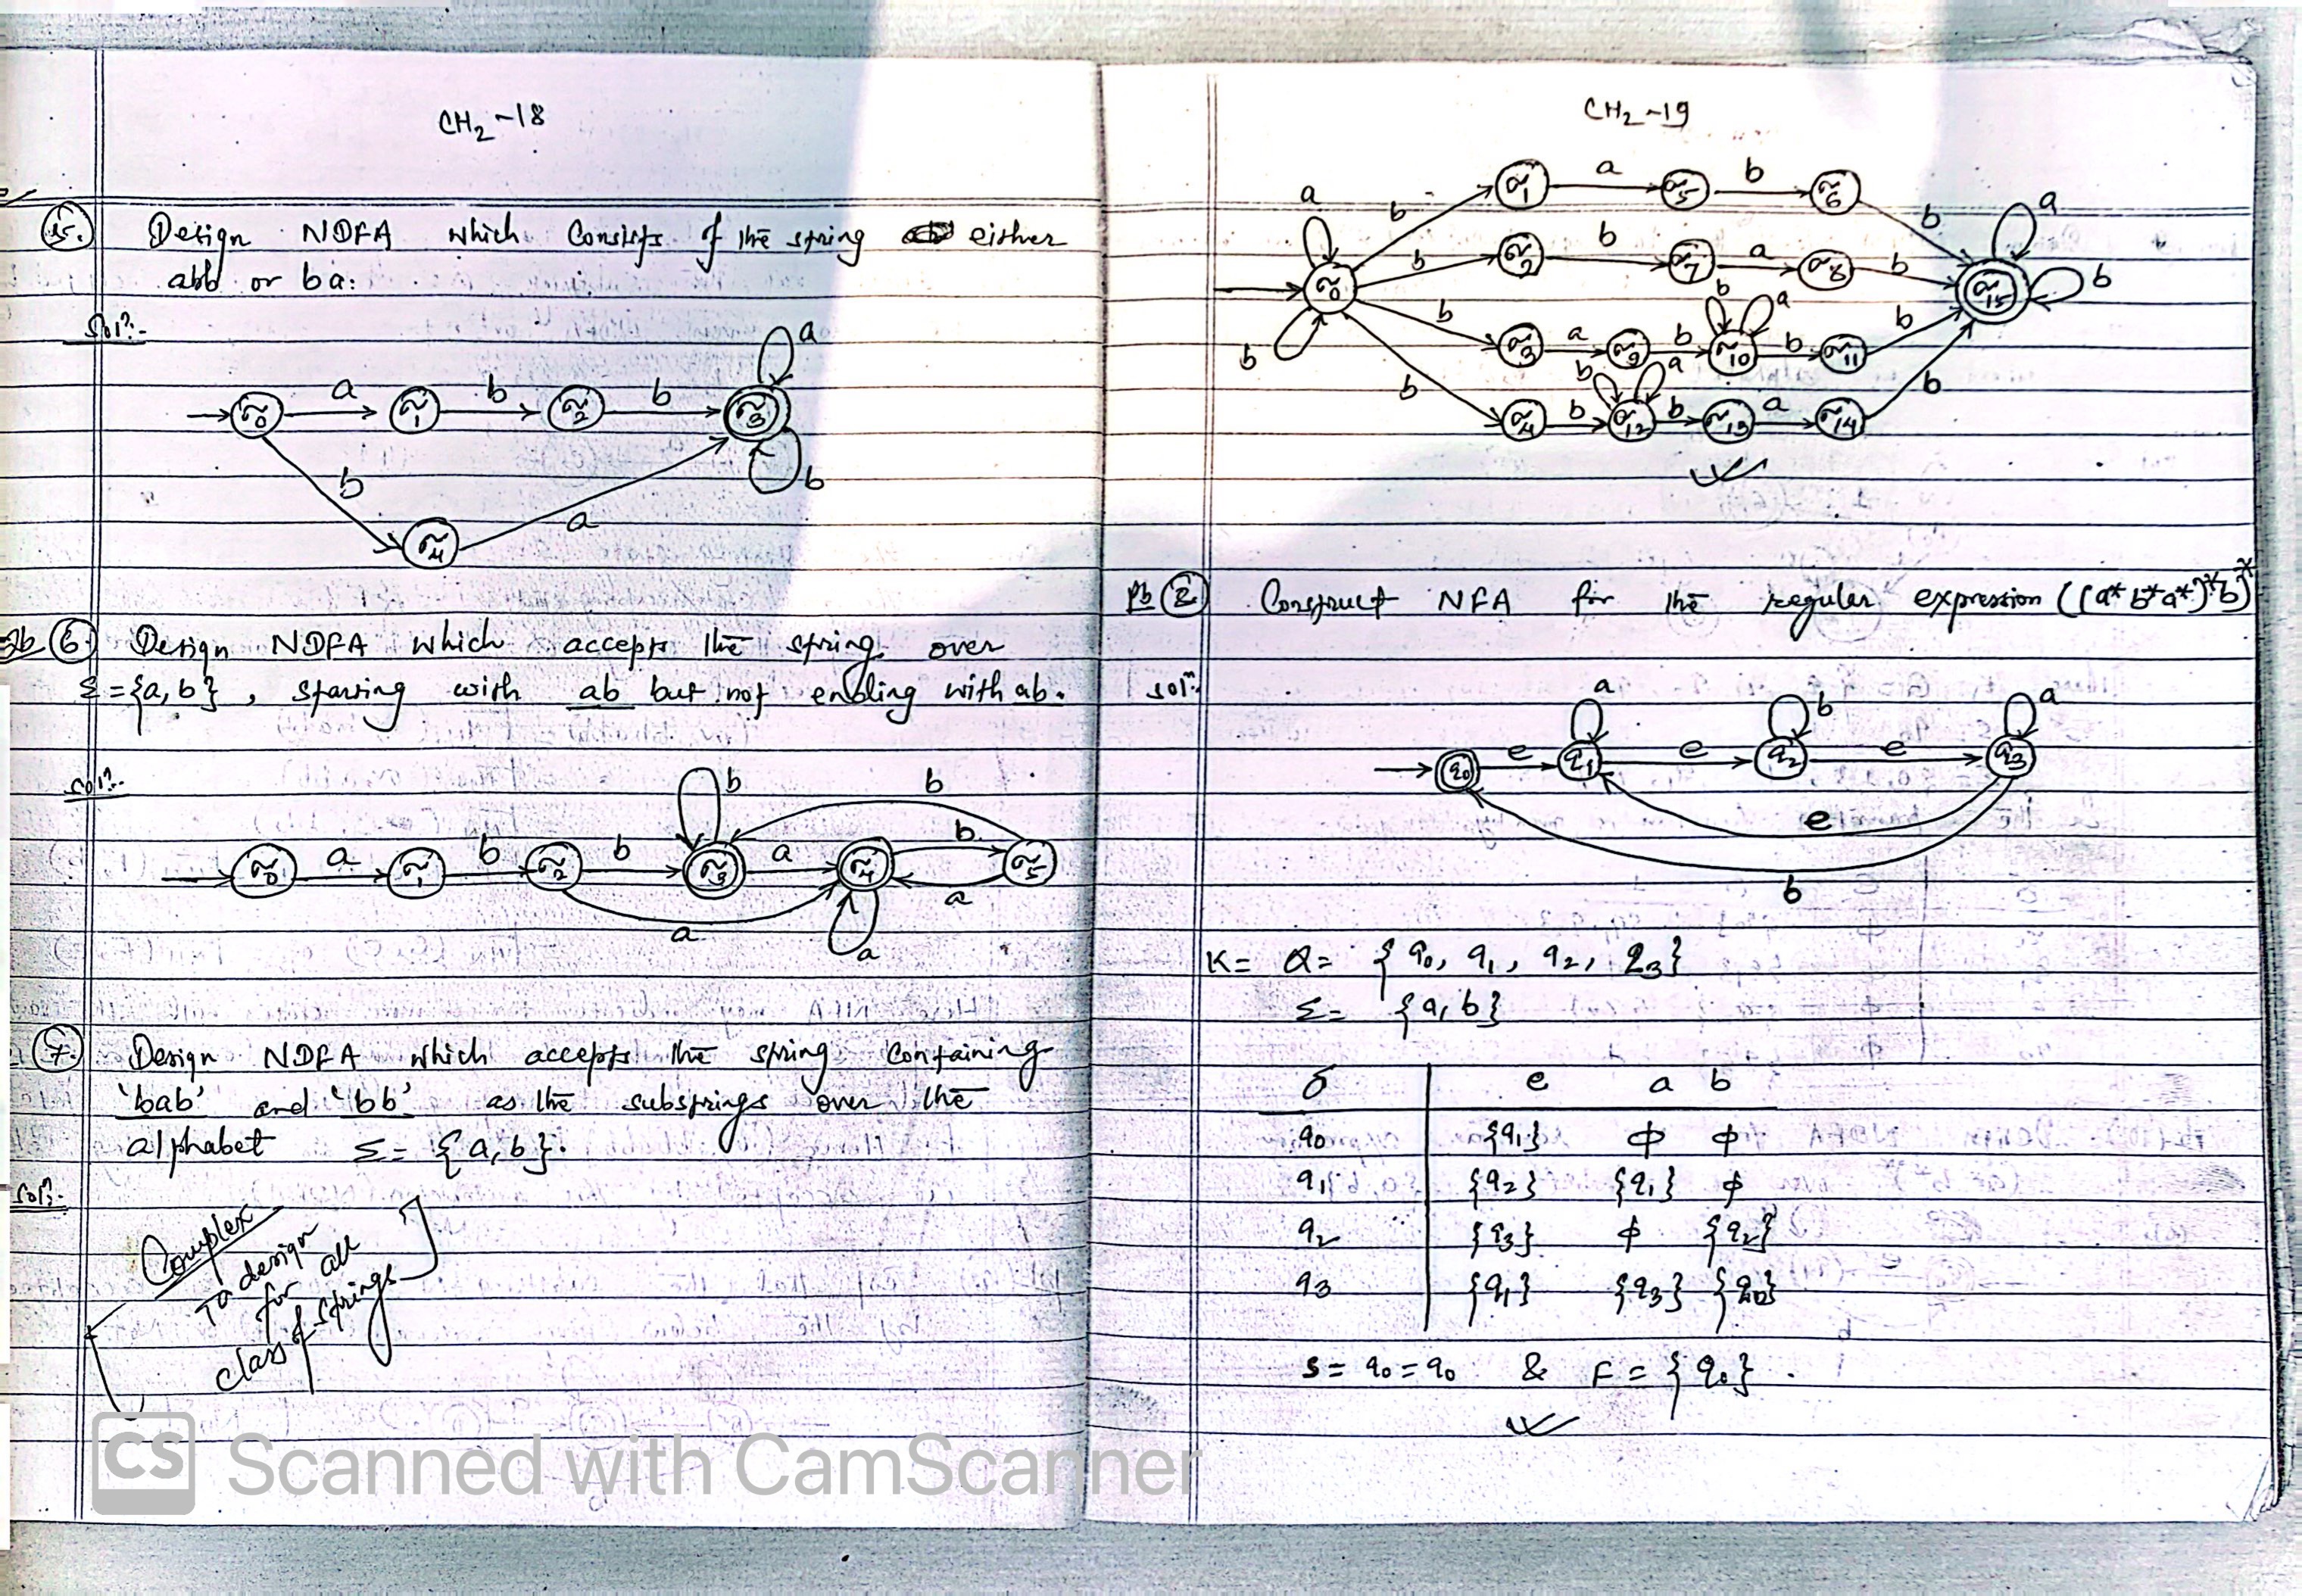 CH2-18
5. Design NDFA which Consists of the string either
abb or ba:
Sol?:-
a
q0 a q1 b q2 b q3
b
b
q4 a
Pb 6. Design NDFA which accepts the string over
Σ={a,b}, starting with ab but not ending with ab.
Sol?:-
b b
q0 a q1 b q2 b q3 a q4 b q5
a
a a
7. Design NDFA which accepts the string Containing
'bab' and 'bb' as the substrings over the
alphabet Σ= {a,b}.
Sol?:-
Complex
To design
for all
class of strings
CH2-19
b q1 a q5 b q6 b
a b q2 b q7 a q8 b a
q0 q15 b
b b q3 a q9 b q10 b a b q11 b
b q4 b q12 b a b q13 a q14 b
Pb 8 Construct NFA for the regular expression ((a*b*a*)*b)*
Sol?:-
a b a
q0 e q1 e q2 e q3
e
b
K= Q= {q0, q1, q2, q3}
Σ= {a,b}
δ e a b
q0 {q1} ϕ ϕ
q1 {q2} {q1} ϕ
q2 {q3} ϕ {q2}
q3 {q1} {q3} {q0}
S= q0 = q0 & F = {q0}.
CS Scanned with CamScanner